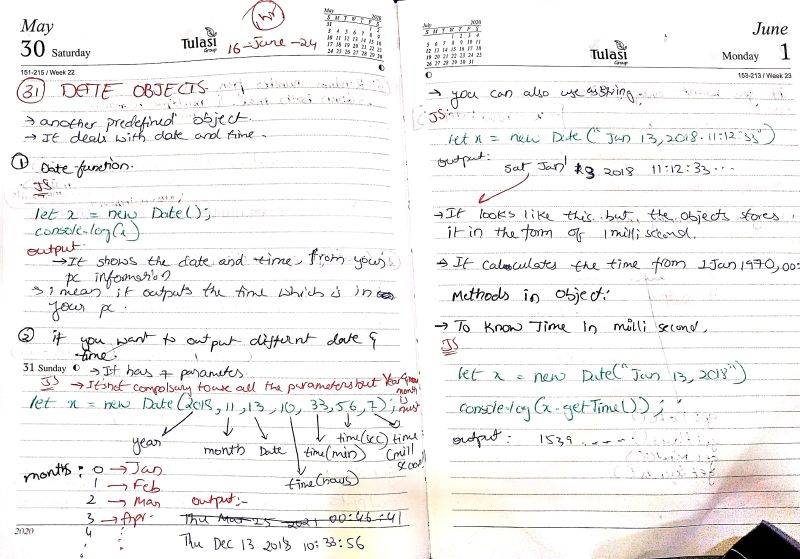 May
30 Saturday
1 hr
Tulasi
Group
16-June-24
May 2020
S M T W T F S
31 1 2
3 4 5 6 7 8 9
10 11 12 13 14 15 16
17 18 19 20 21 22 23
24 25 26 27 28 29 30
151-215 / Week 22
31 DATE OBJECTS
→ another predefined object
→ It deals with date and time.
1 Date function.
JS
let x = new Date();
console.log(x)
output
→ It shows the date and time, from your
pc information
→ i mean it outputs the time which is in
your pc.
2 if you want to output differnt date &
time.
31 Sunday
→ It has 7 parameters
JS → It's not compulsary to use all the parameters but Year & month is must
let x = new Date(2018, 11, 13, 10, 33, 56, 7);
year
month
Date
time(hours)
time(min)
time(sec)
time
(mill
second)
months: 0 → Jan
1 → Feb
2 → Mar
3 → Apr
4
output:-
Thu Mar 25 2021 00:46:41
Thu Dec 13 2018 10:33:56
2020
July 2020
S M T W T F S
1 2 3 4
5 6 7 8 9 10 11
12 13 14 15 16 17 18
19 20 21 22 23 24 25
26 27 28 29 30 31
Tulasi
Group
June
Monday 1
153-213 / Week 23
→ you can also use as string.
JS:
let x = new Date("Jan 13, 2018. 11:12:33")
output:
Sat Jan 13 2018 11:12:33...
→ It looks like this but the objects stores
it in the form of 1 milli second.
→ It calculates the time from 1 Jan 1970, 00:
Methods in object:
→ To know Time in milli second.
JS
let x = new Date("Jan 13, 2018")
console.log(x.getTime());
output: 1539.....